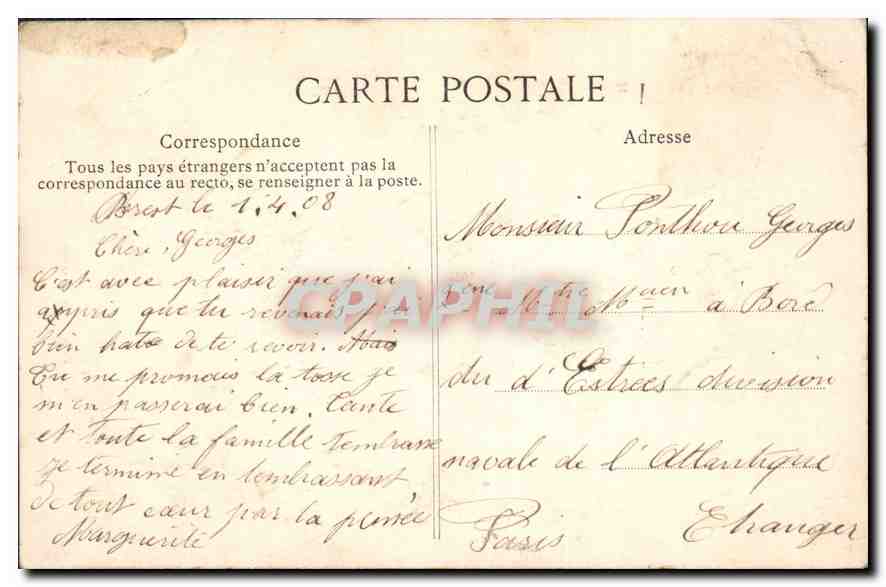 CARTE POSTALE
Correspondance
Tous les pays étrangers n'acceptent pas la
correspondance au recto, se renseigner à la poste.
Brest le 1.4.08
Chère, Georges
C'est avec plaisir que j'ai
appris que tu revenais j'ai
bien hate de te revoir. Mais
Tu me promais la tosse je
m'en passerai bien. Tante
et toute la famille tembrasse
je termine en tembrassant
de tout cœur par la pensée
Marguerite
Adresse
Monsieur Ponthou Georges
2ème Mtre Mcien à Bord
du d'Estrées division
navale de l'Atlantique
Paris Etranger
CPAPHIL